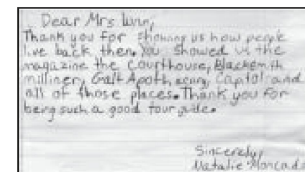 Dear Mrs Winn,
Thank you for showing us how people
live back then. You showed us the
magazine the Courthouse, Blacksmith
milliner, Galt Apothecary, Captol and
all of those places. Thank you for
being such a good tour guide.
Sincerely,
Natalie Moncada